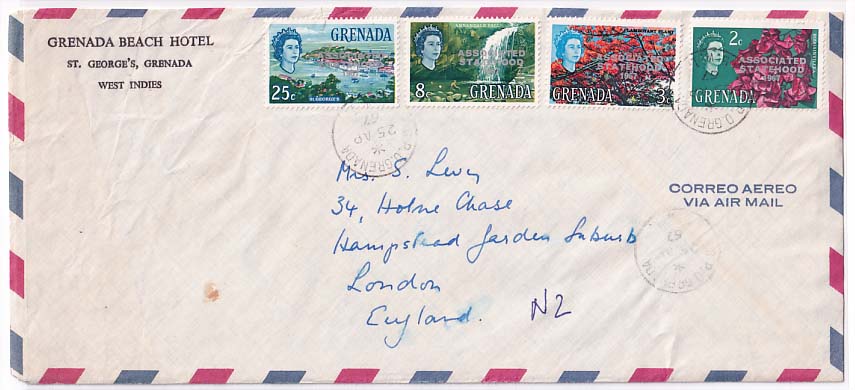 GRENADA BEACH HOTEL
ST. GEORGE'S, GRENADA
WEST INDIES
GRENADA
25c
ST. GEORGE'S
ANNANDALE FALLS
ASSOCIATED
STATEHOOD
1967
8c
GRENADA
FLAMBOYANT PLANT
ASSOCIATED
STATEHOOD
1967
GRENADA
3c
2c
ASSOCIATED
STATEHOOD
1967
GRENADA
BOUGAINVILLEA
G.P.O. GRENADA
25 AP
67
G.P.O. GRENADA
Mrs. S. Levy
34, Holne Chase
Hampstead Garden Suburb
London
England.
N2
CORREO AEREO
VIA AIR MAIL
67